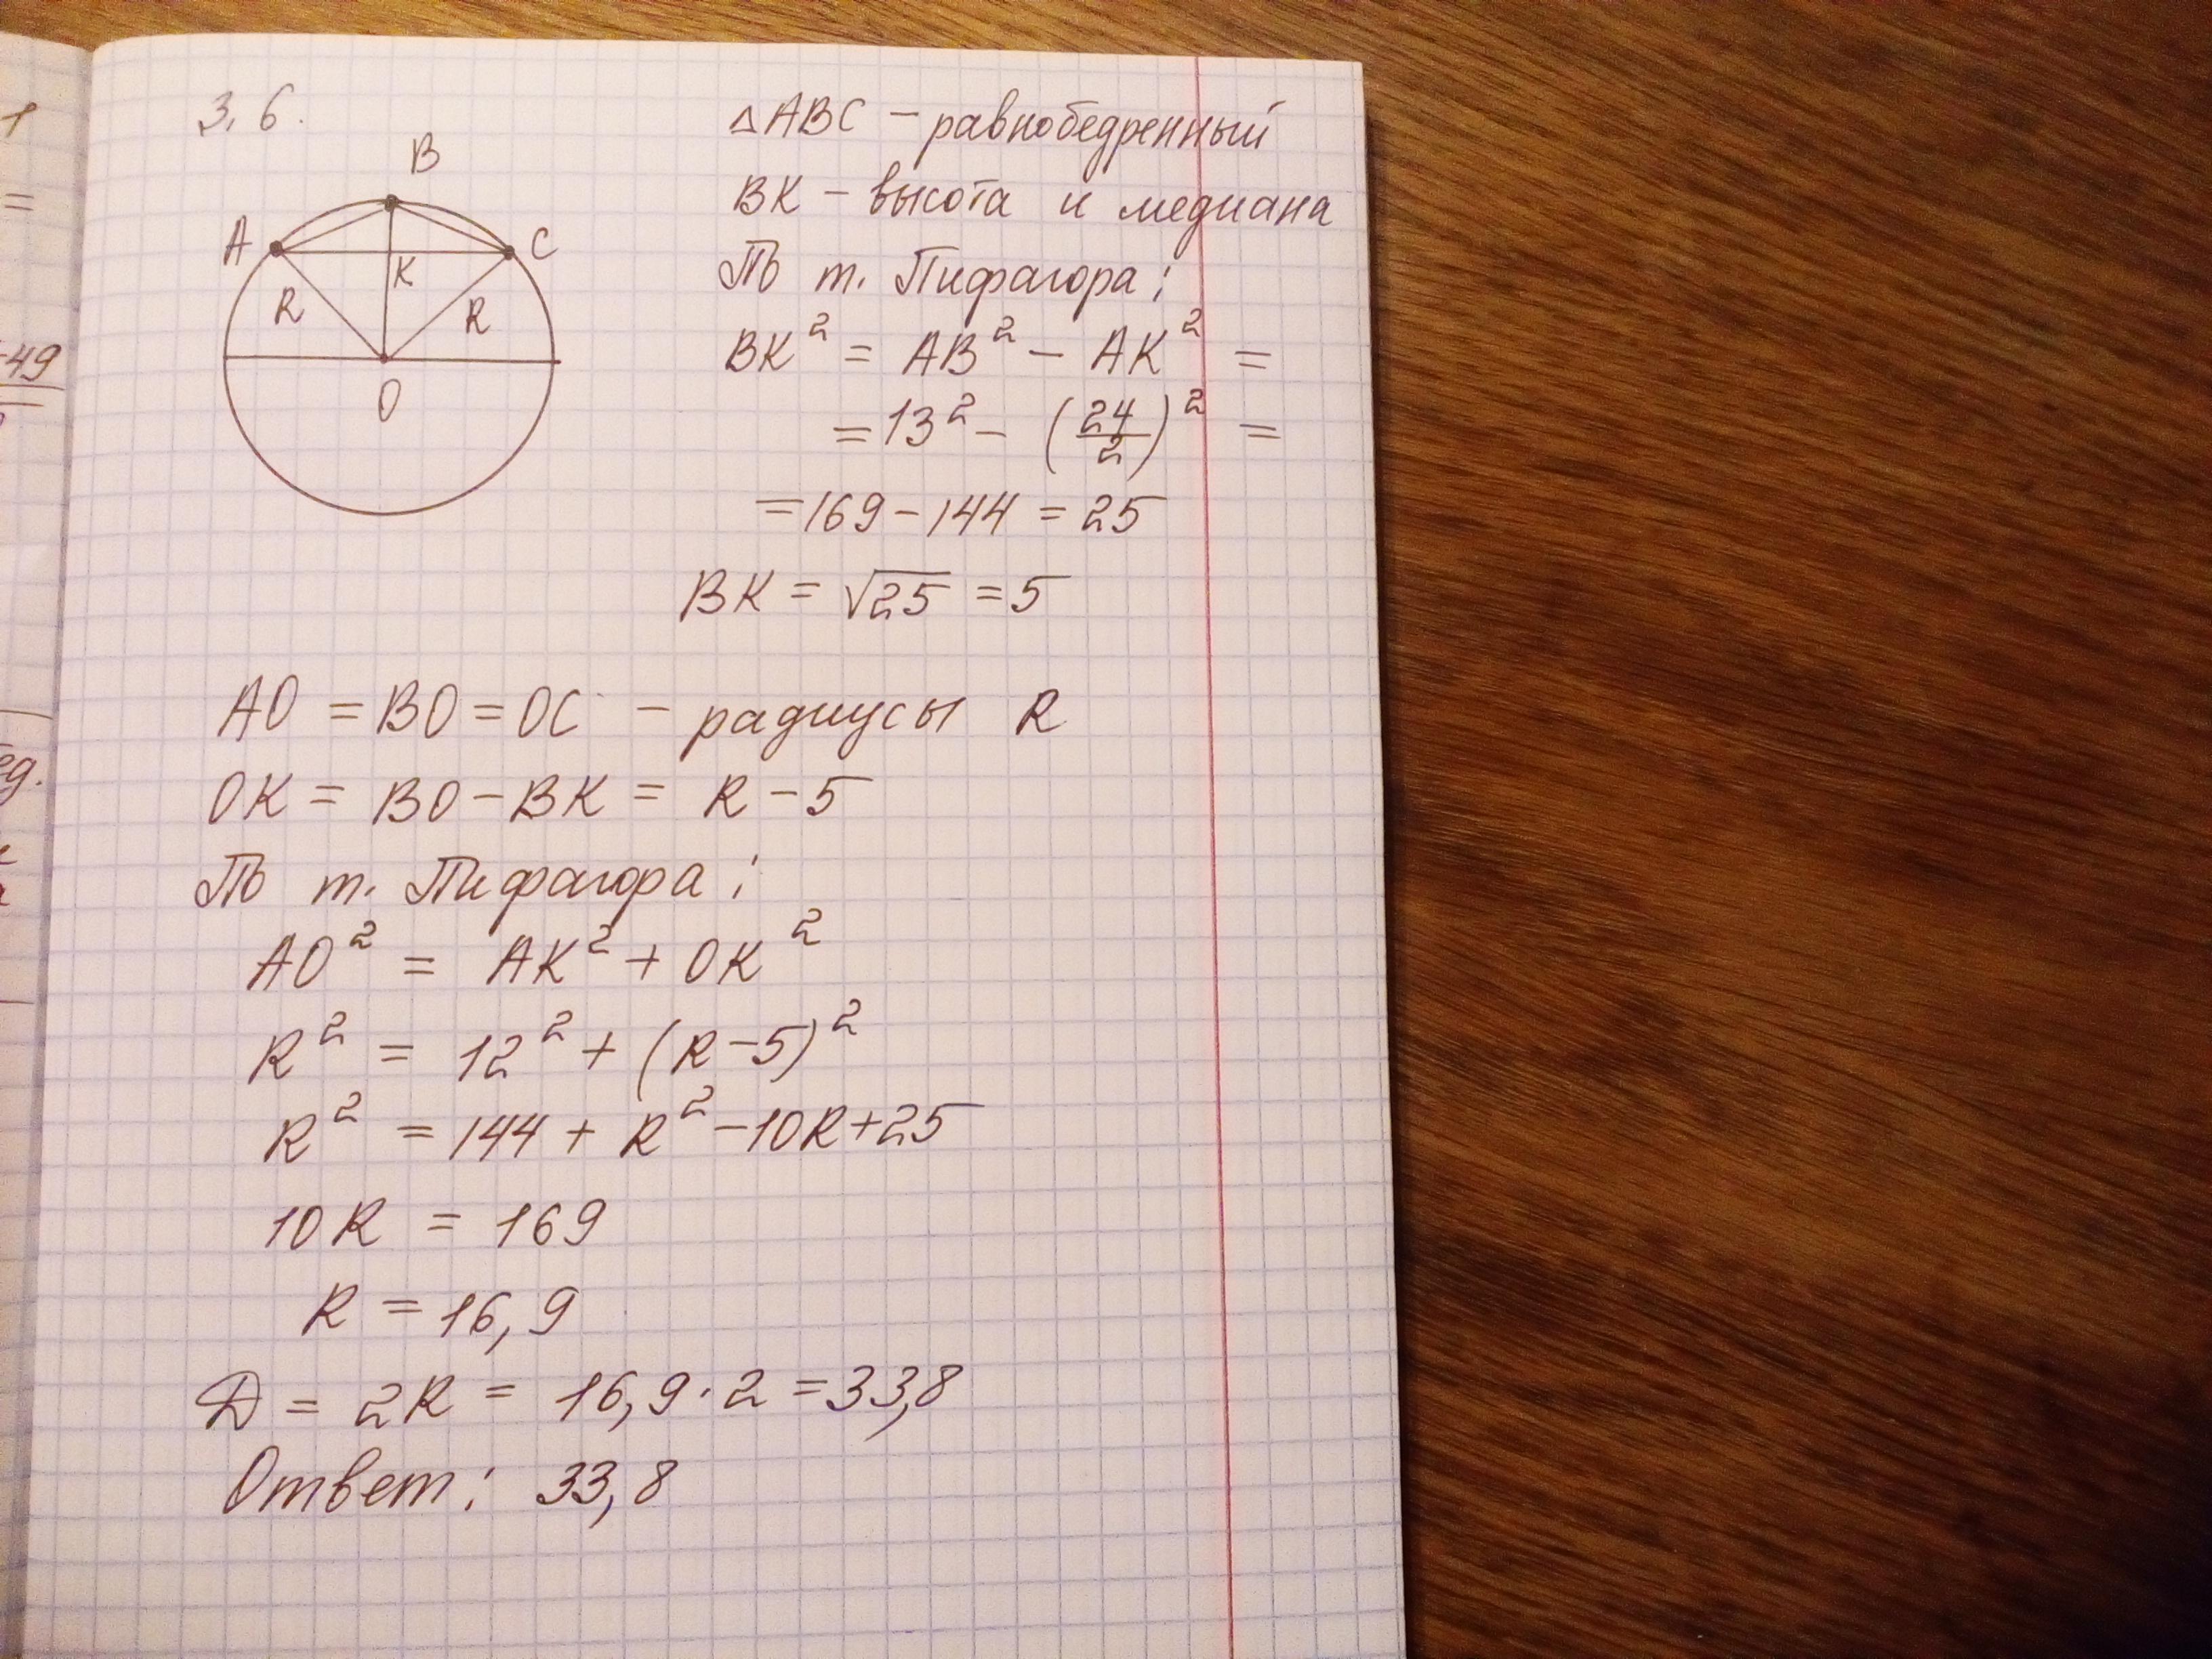 3.6.
B
A
C
K
R
R
O
△ABC – равнобедренный
BK – высота и медиана
По т. Пифагора:
BK² = AB² – AK² =
= 13² – (24/2)² =
= 169 – 144 = 25
BK = √25 = 5
AO = BO = OC – радиусы R
OK = BO – BK = R – 5
По т. Пифагора:
AO² = AK² + OK²
R² = 12² + (R – 5)²
R² = 144 + R² – 10R + 25
10R = 169
R = 16,9
D = 2R = 16,9 · 2 = 33,8
Ответ: 33,8
1
=
-49
ед.